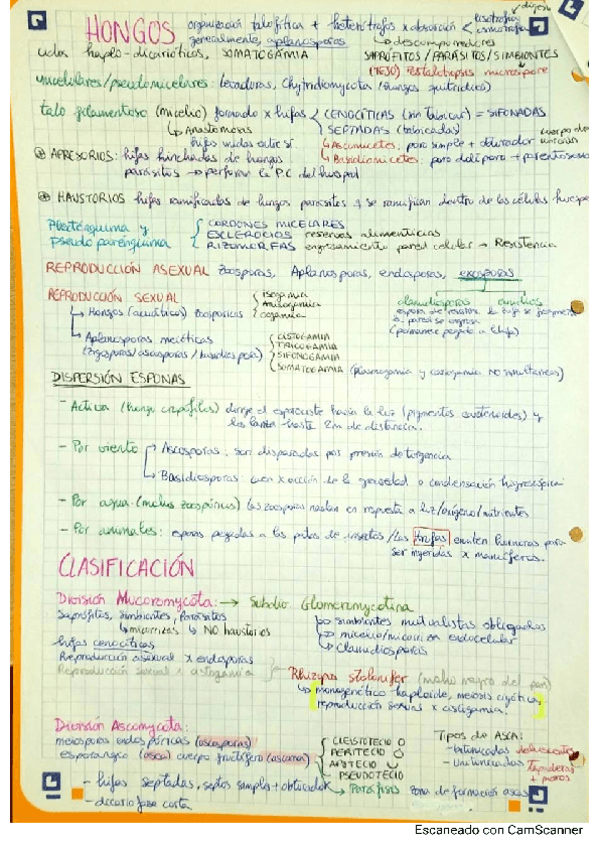 HONGOS organización talofítica + heterótrofos x absorción < lisotrofia
generalmente, aplanosporas
↳ descomponedores
ciclos haplo-dicarióticos, SOMATOGAMIA SAPRÓFITOS/PARÁSITOS/SIMBIONTES
(TEJO) Pestalotiopsis microspora
unicelulares/pseudomicelares: levaduras, Chytridiomycota (hongos quitridios)
talo filamentoso (micelio) formado x hifas < CENOCÍTICAS (sin tabicar) = SIFONADAS
SEPTADAS (tabicadas)
↳ Anastomosis
hifas unidas entre sí
↳ Ascomicetes: poro simple + obturador
↳ Basidiomicetes: poro dolíporo + parentosoma
APRESORIOS: hifas hinchadas de hongos
parásitos → perforar la P.C del huesped
HAUSTORIOS hifas ramificadas de hongos parásitos q se ramifican dentro de las células huesped
Plecténquima y
pseudoparénquima
CORDONES MICELARES
ESCLEROCIOS reservas alimenticias
RIZOMORFAS engrosamiento pared celular → Resistencia
REPRODUCCIÓN ASEXUAL zoosporas, Aplanosporas, endosporas, exosporas
REPRODUCCIÓN SEXUAL
isogamia
Anisogamia
oogamia
↳ Hongos (acuáticos) zoospóricos
clamidiosporas
(permanece pegada a la hifa)
↳ Aplanosporas meióticas
(zigosporas/ascosporas/basidiosporas)
CISTOGAMIA
TRICOGAMIA
SIFONOGAMIA
SOMATOGAMIA (plasmogamia y cariogamia NO simultáneas)
DISPERSIÓN ESPORAS
- Activa (hongos coprófilos) dirige el esporocisto hacia la luz (pigmentos carotenoides) y
las lanza hasta 2m de distancia.
- Por viento → Ascosporas: son disparadas por presión de turgencia
↳ Basidiosporas: caen x acción de la gravedad o condensación higroscópica
- Por agua (mohos zoospóricos) las zoosporas nadan en respuesta a luz/oxígeno/nutrientes
- Por animales: esporas pegadas a las patas de insectos / las trufas emiten hormonas para
ser ingeridas x mamíferos.
CLASIFICACIÓN
División Mucoromycota: → Subdiv. Glomeromycotina
Saprófitos, simbiontes, Parásitos
↳ micorrizas ↳ NO haustorios
↳ simbiontes mutualistas obligados
↳ micelio/micorriza endocelular
↳ Clamidiosporas
hifas cenocíticas
Reproducción asexual x endosporas
Reproducción sexual x cistogamia
Rhizopus stolonifer (moho negro del pan)
↳ monogenético haploide, meiosis cigótica,
reproducción sexual x cistogamia.
División Ascomycota:
meiosporas endospóricas (ascosporas)
esporangio (asca) cuerpo fructífero (ascoma)
CLEISTOTECIO
PERITECIO
APOTECIO
PSEUDOTECIO
Tipos de ASCA:
- bitunicadas dehiscentes
- Unitunicadas
+ poros
- hifas septadas, septos simples + obturador
↳ Paráfisis zona de formación ascas
- dicariofase corta
Escaneado con CamScanner